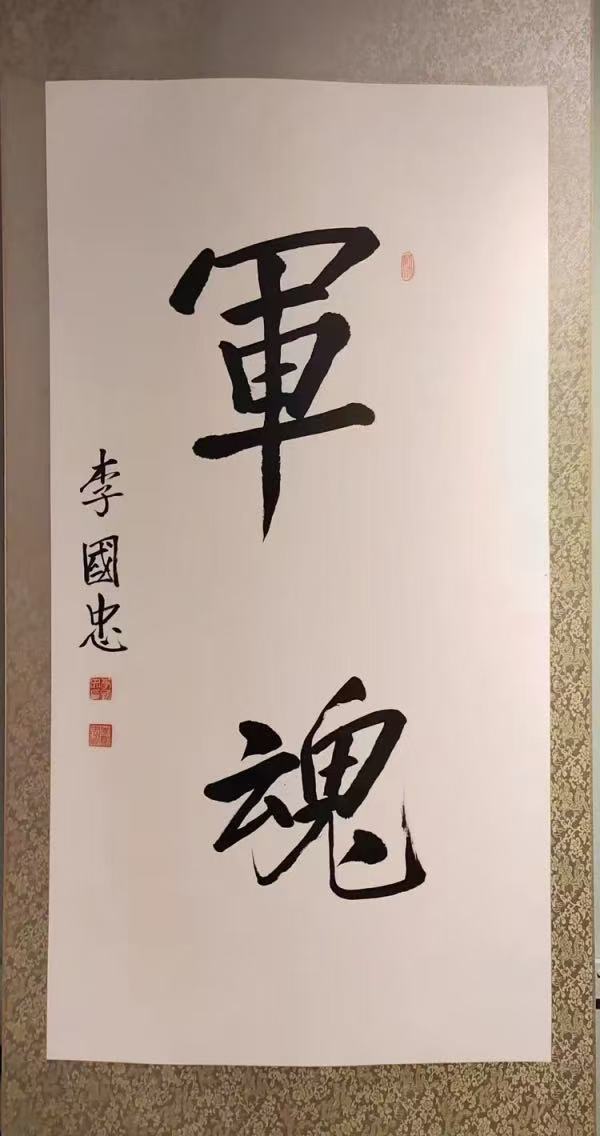 軍魂
李國忠